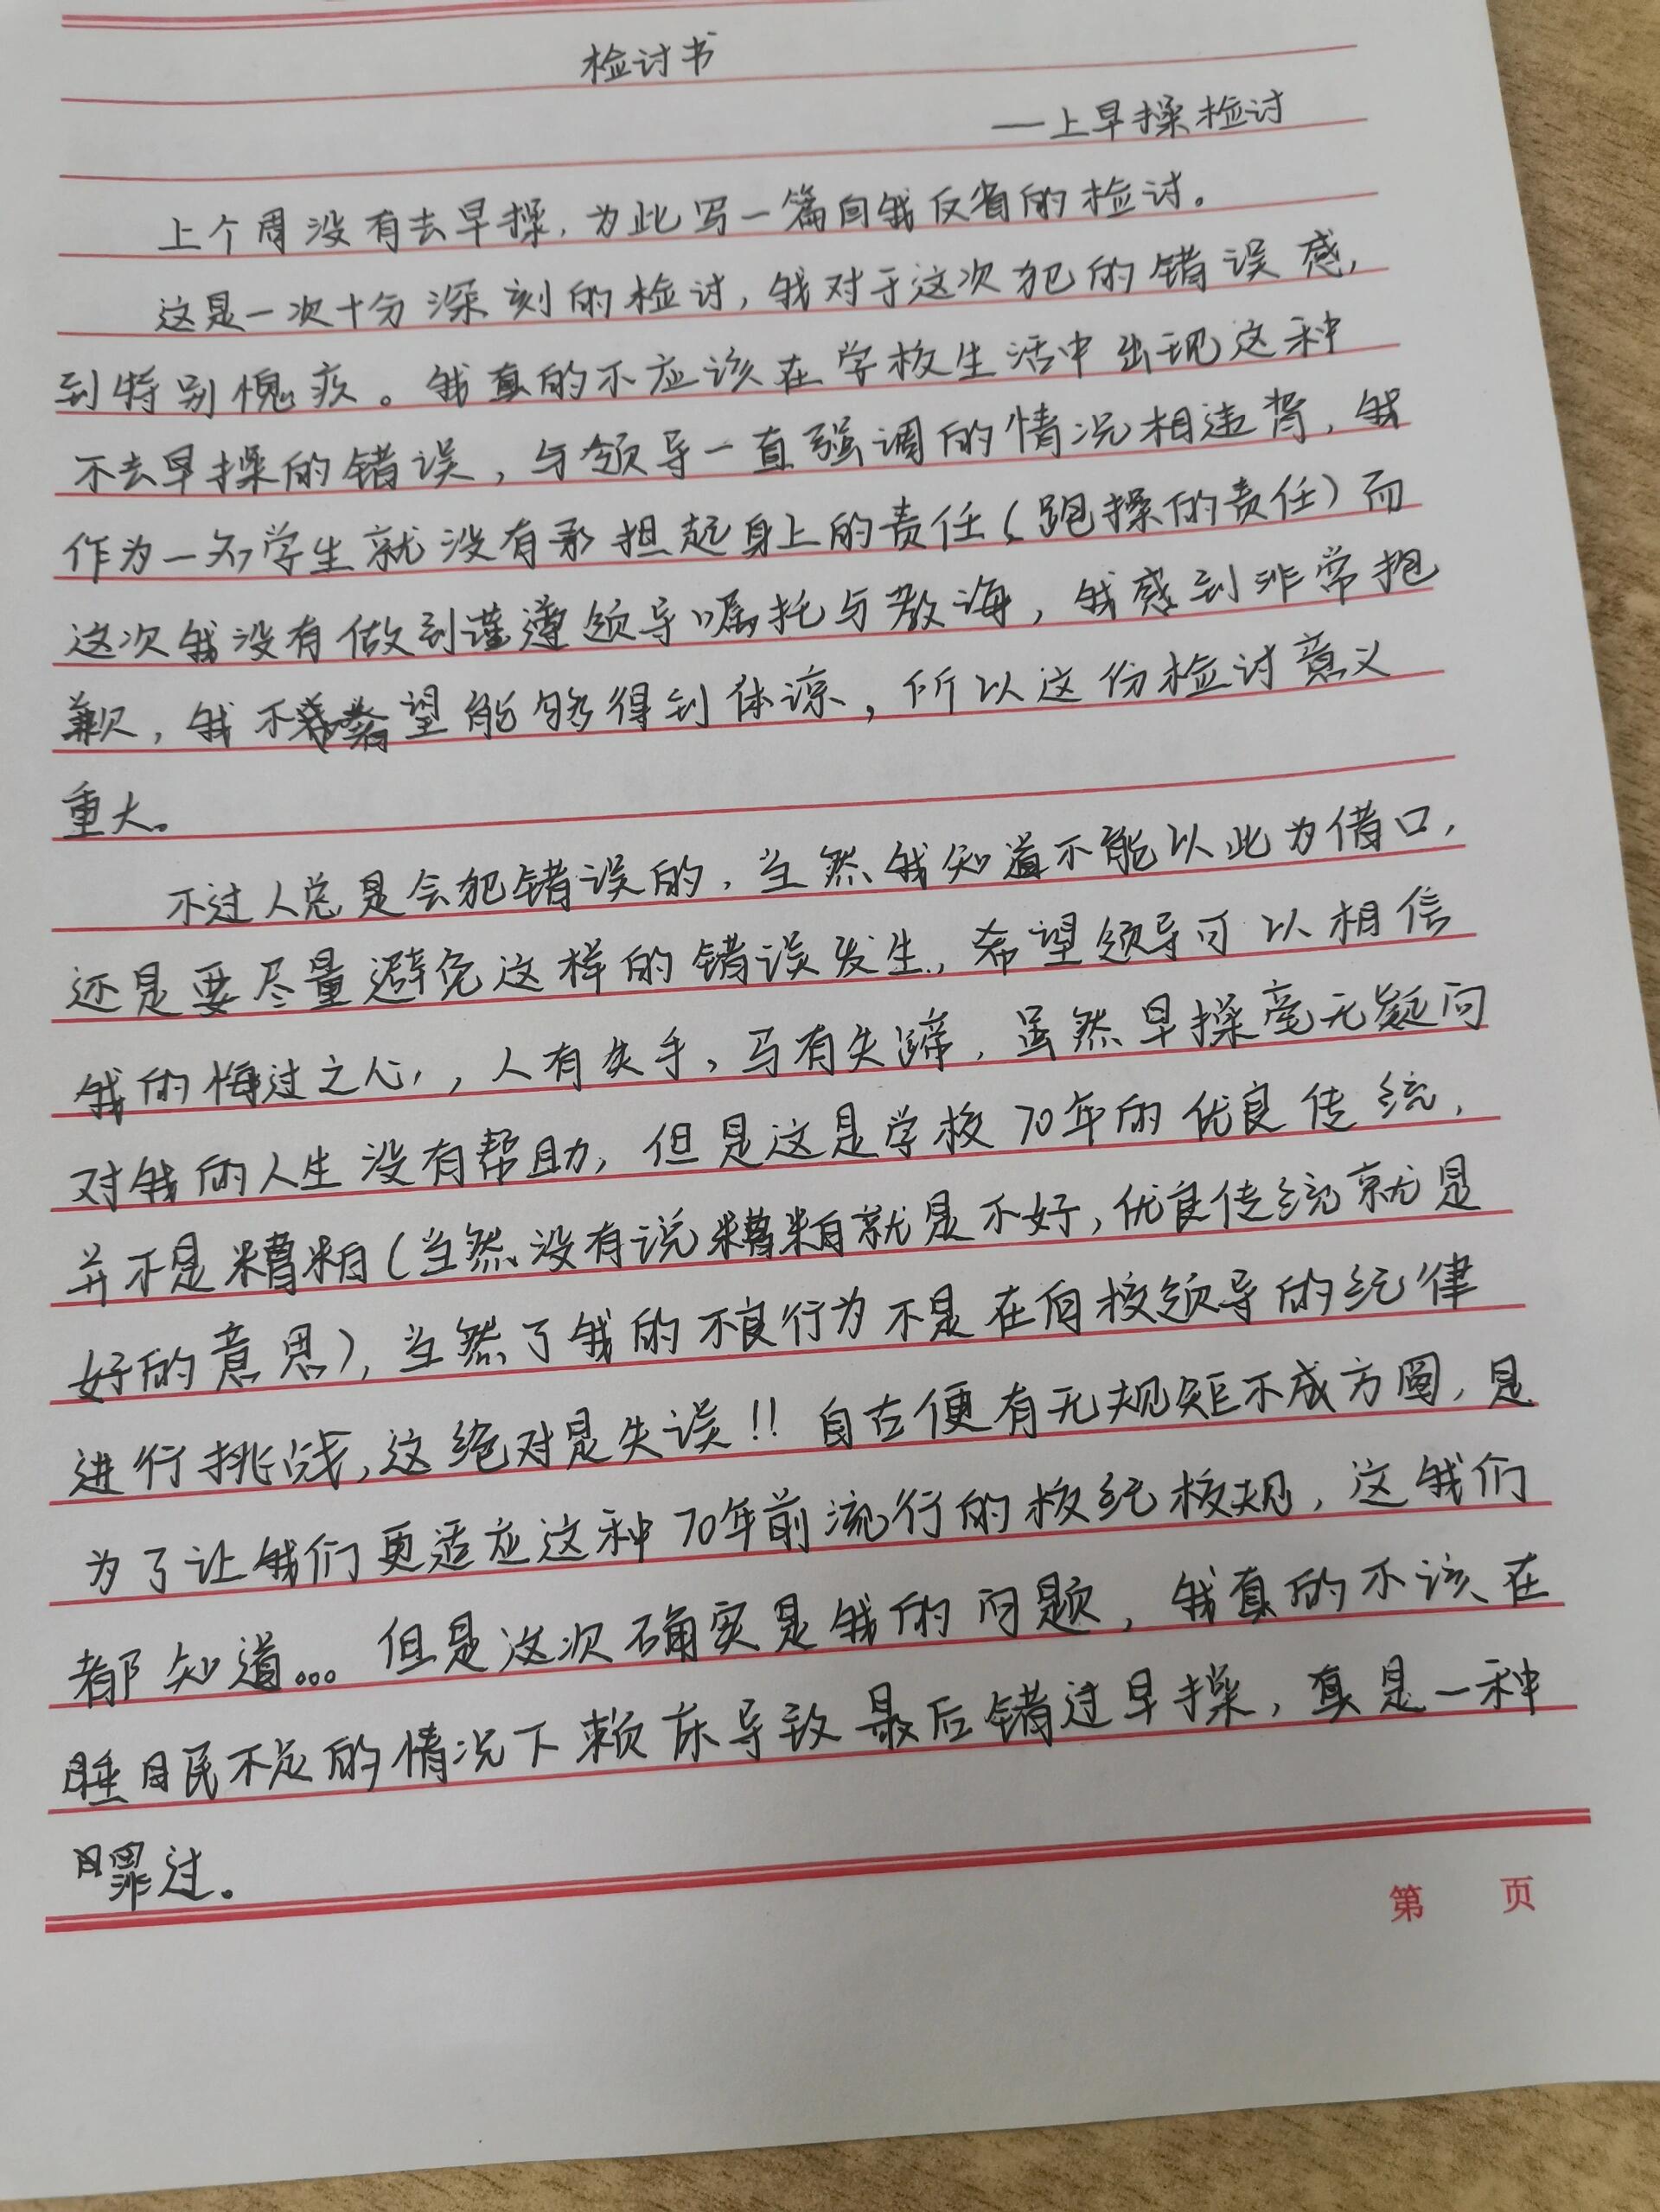 检讨书
—上早操检讨
上个周没有去早操，为此写一篇自我反省的检讨。
这是一次十分深刻的检讨，我对于这次犯的错误感，
到特别愧疚。我真的不应该在学校生活中出现这种
不去早操的错误，与领导一直强调的情况相违背，我
作为一名学生就没有承担起身上的责任（跑操的责任）而
这次我没有做到谨遵领导嘱托与教诲，我感到非常抱
歉，我不希望能够得到体谅，所以这份检讨意义
重大。
不过人总是会犯错误的，当然我知道不能以此为借口，
还是要尽量避免这样的错误发生，希望领导可以相信
我的悔过之心，，人有失手，马有失蹄，虽然早操毫无疑问
对我的人生没有帮助，但是这是学校70年的优良传统，
并不是糟粕（当然没有说糟粕就是不好，优良传统就是
好的意思），当然了我的不良行为不是在向校领导的纪律
进行挑战，这绝对是失误！！自古便有无规矩不成方圆，是
为了让我们更适应这种70年前流行的校纪校规，这我们
都知道。。。但是这次确实是我的问题，我真的不该在
睡眠不足的情况下赖床导致最后错过早操，真是一种
罪过。
第 页